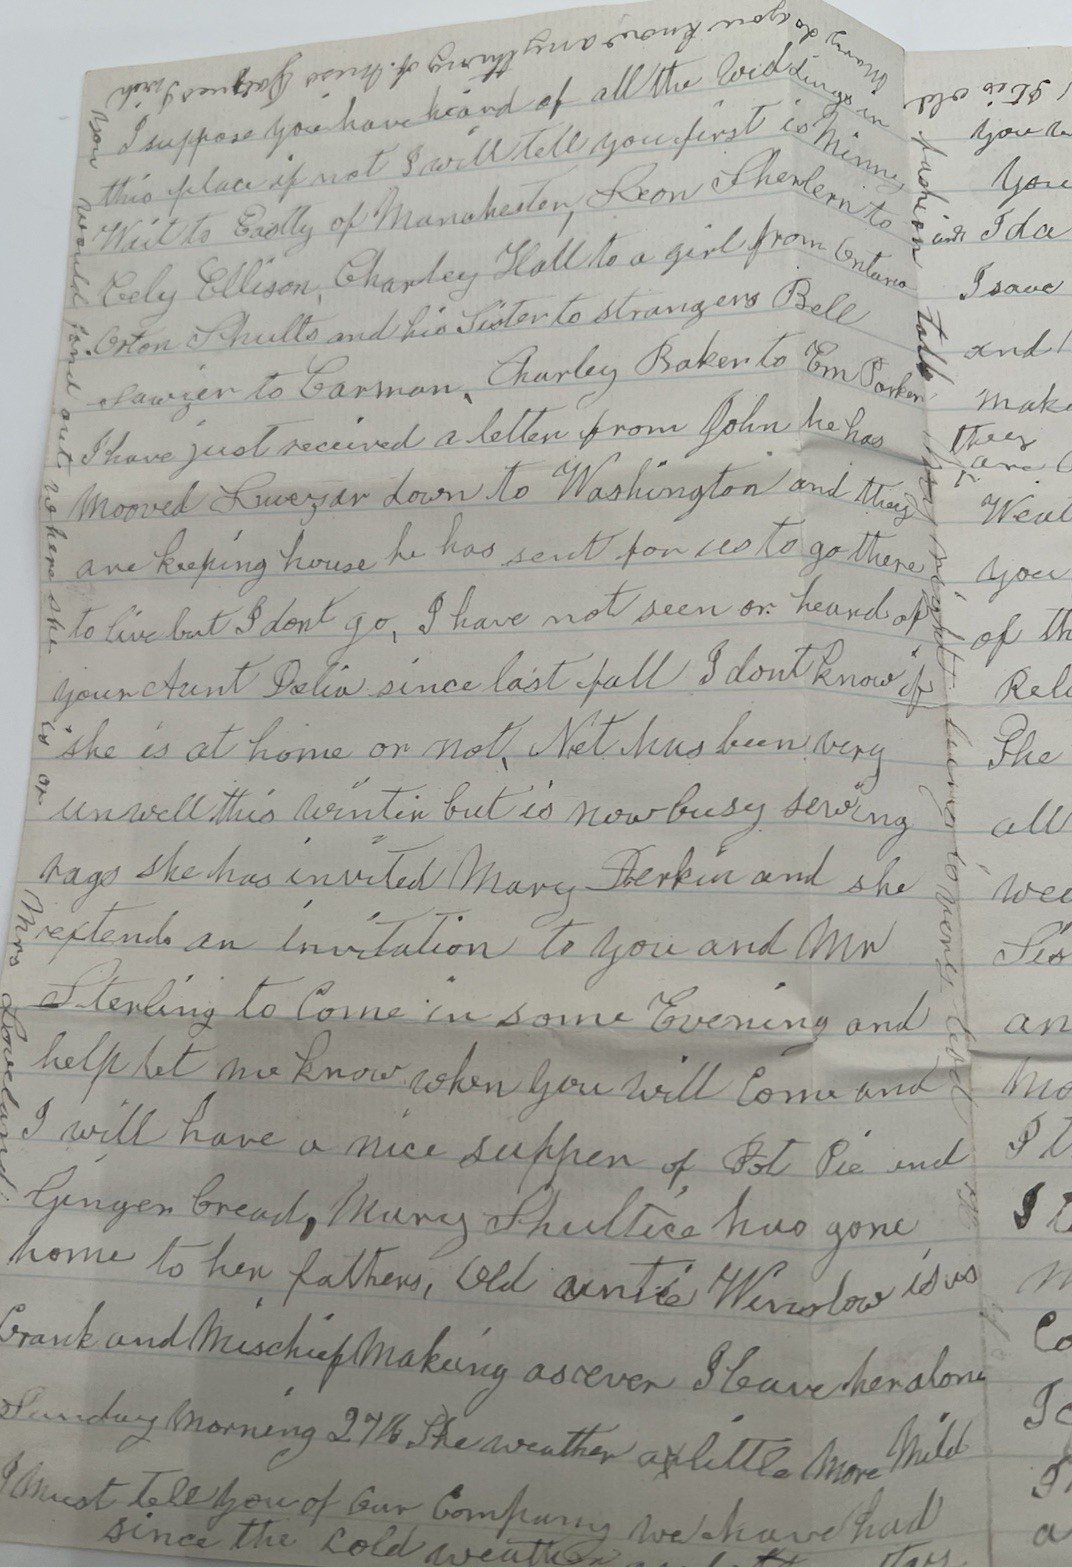 Mary do you know any thing of Miss I wish
you would find out where she is or Mrs Loveland
I suppose you have heard of all the Weddings in
this place if not I will tell you first is Minny
Wiit to Eastty of Manchester, Leon Sherbern to
Cely Ellison, Charley Hall to a girl from Ontario
Orton Shults and his Sister to strangers Bell
Sawyer to Carman, Charley Baker to Em Parker
I have just received a letter from John he has
mooved Luwezar down to Washington and they
are keeping house he has sent for us to go there
to live but I dont go, I have not seen or heard of
your Aunt Delia since last fall I dont know if
she is at home or not, Net has been very
unwell this winter but is now busy sewing
rags she has invited Mary Derkin and she
extends an invitation to you and Mr
Sterling to Come in some Evening and
help let me know when you will Come and
I will have a nice supper of Pot Pie and
Ginger bread, Mary Shultice has gone
home to her fathers, Old auntie Winslow is as
Crank and Mischief Making as ever I leave her alone
Sunday Morning 27th The weather a little More Mild
I must tell you of Our Company we have had
since the Cold weather
fashion talk
you
and I da
I save
and
make
they
are
Weat
you
of th
Rela
The
all
wee
Sis
an
Mo
I t
I t
M
Co
I
a